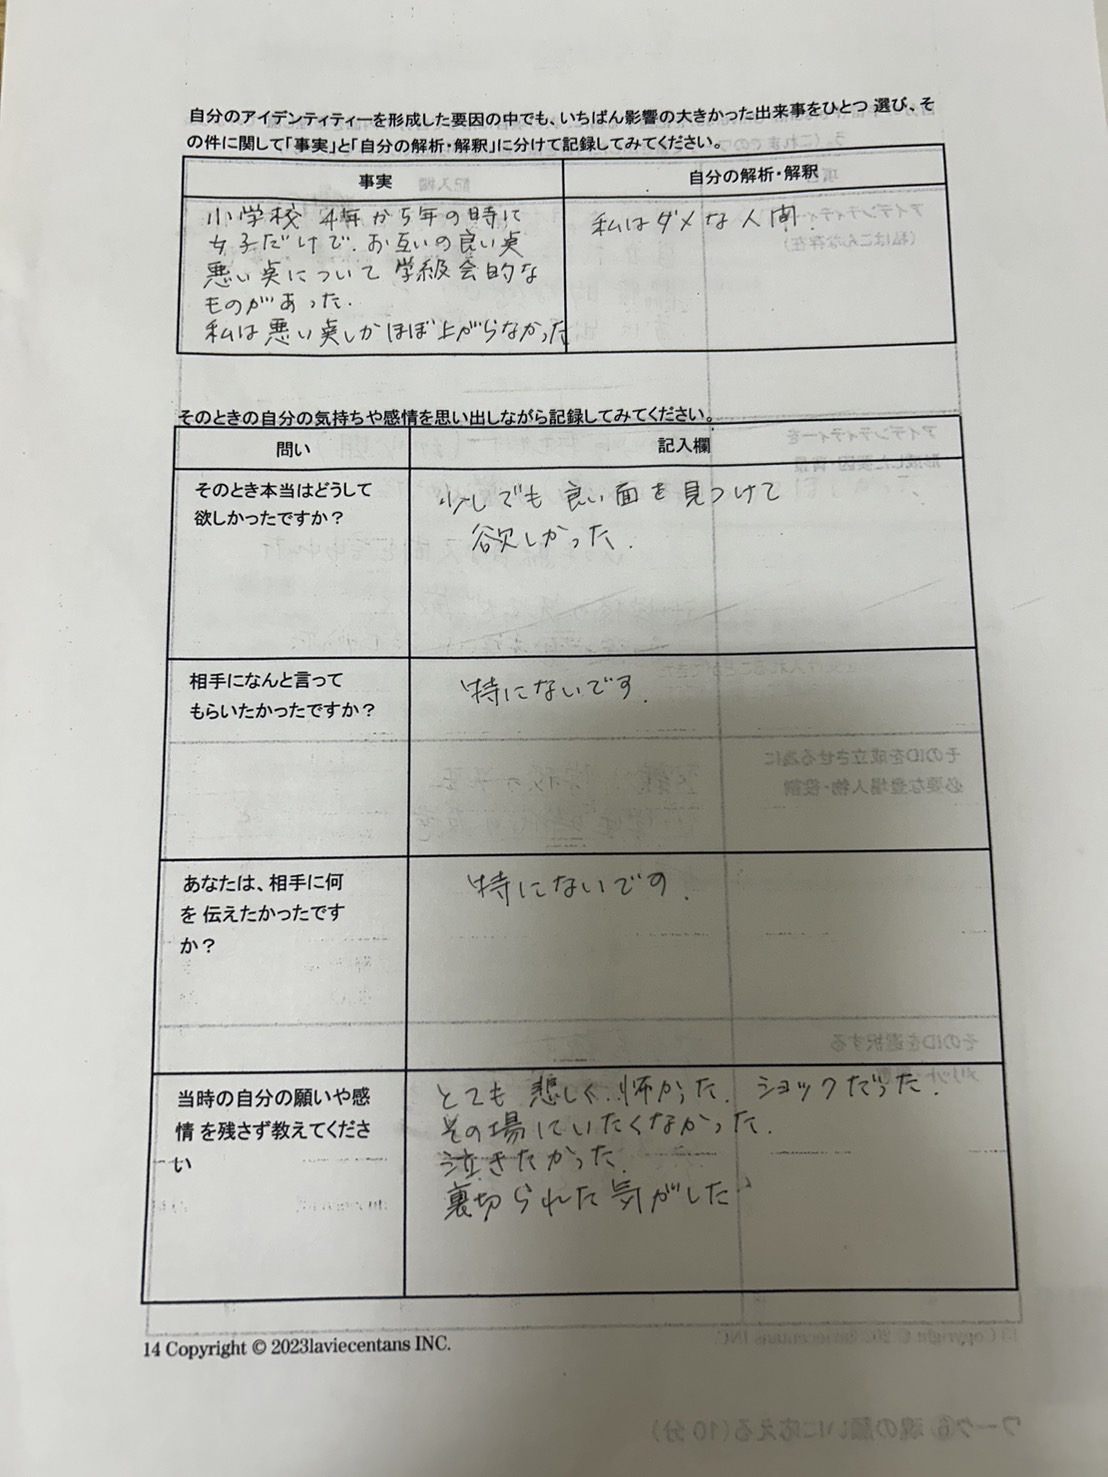 自分のアイデンティティーを形成した要因の中でも、いちばん影響の大きかった出来事をひとつ 選び、そ
の件に関して「事実」と「自分の解析・解釈」に分けて記録してみてください。
事実
自分の解析・解釈
小学校 4年から5年の時に
女子だけで、お互いの良い点
悪い点について学級会的な
ものがあった.
私は悪い点しかほぼ上がらなかった
私はダメな人間.
そのときの自分の気持ちや感情を思い出しながら記録してみてください。
問い
記入欄
そのとき本当はどうして
欲しかったですか？
少しでも良い面を見つけて
欲しかった.
相手になんと言って
もらいたかったですか？
特にないです.
あなたは、相手に何
を 伝えたかったです
か？
特にないです.
当時の自分の願いや感
情 を残さず教えてくださ
い
とても悲しく、怖かった. ショックだった.
その場にいたくなかった.
泣きたかった.
裏切られた気がした.
14 Copyright © 2023laviecentans INC.
ワーク⑥ 魂の願いに応える(10分)